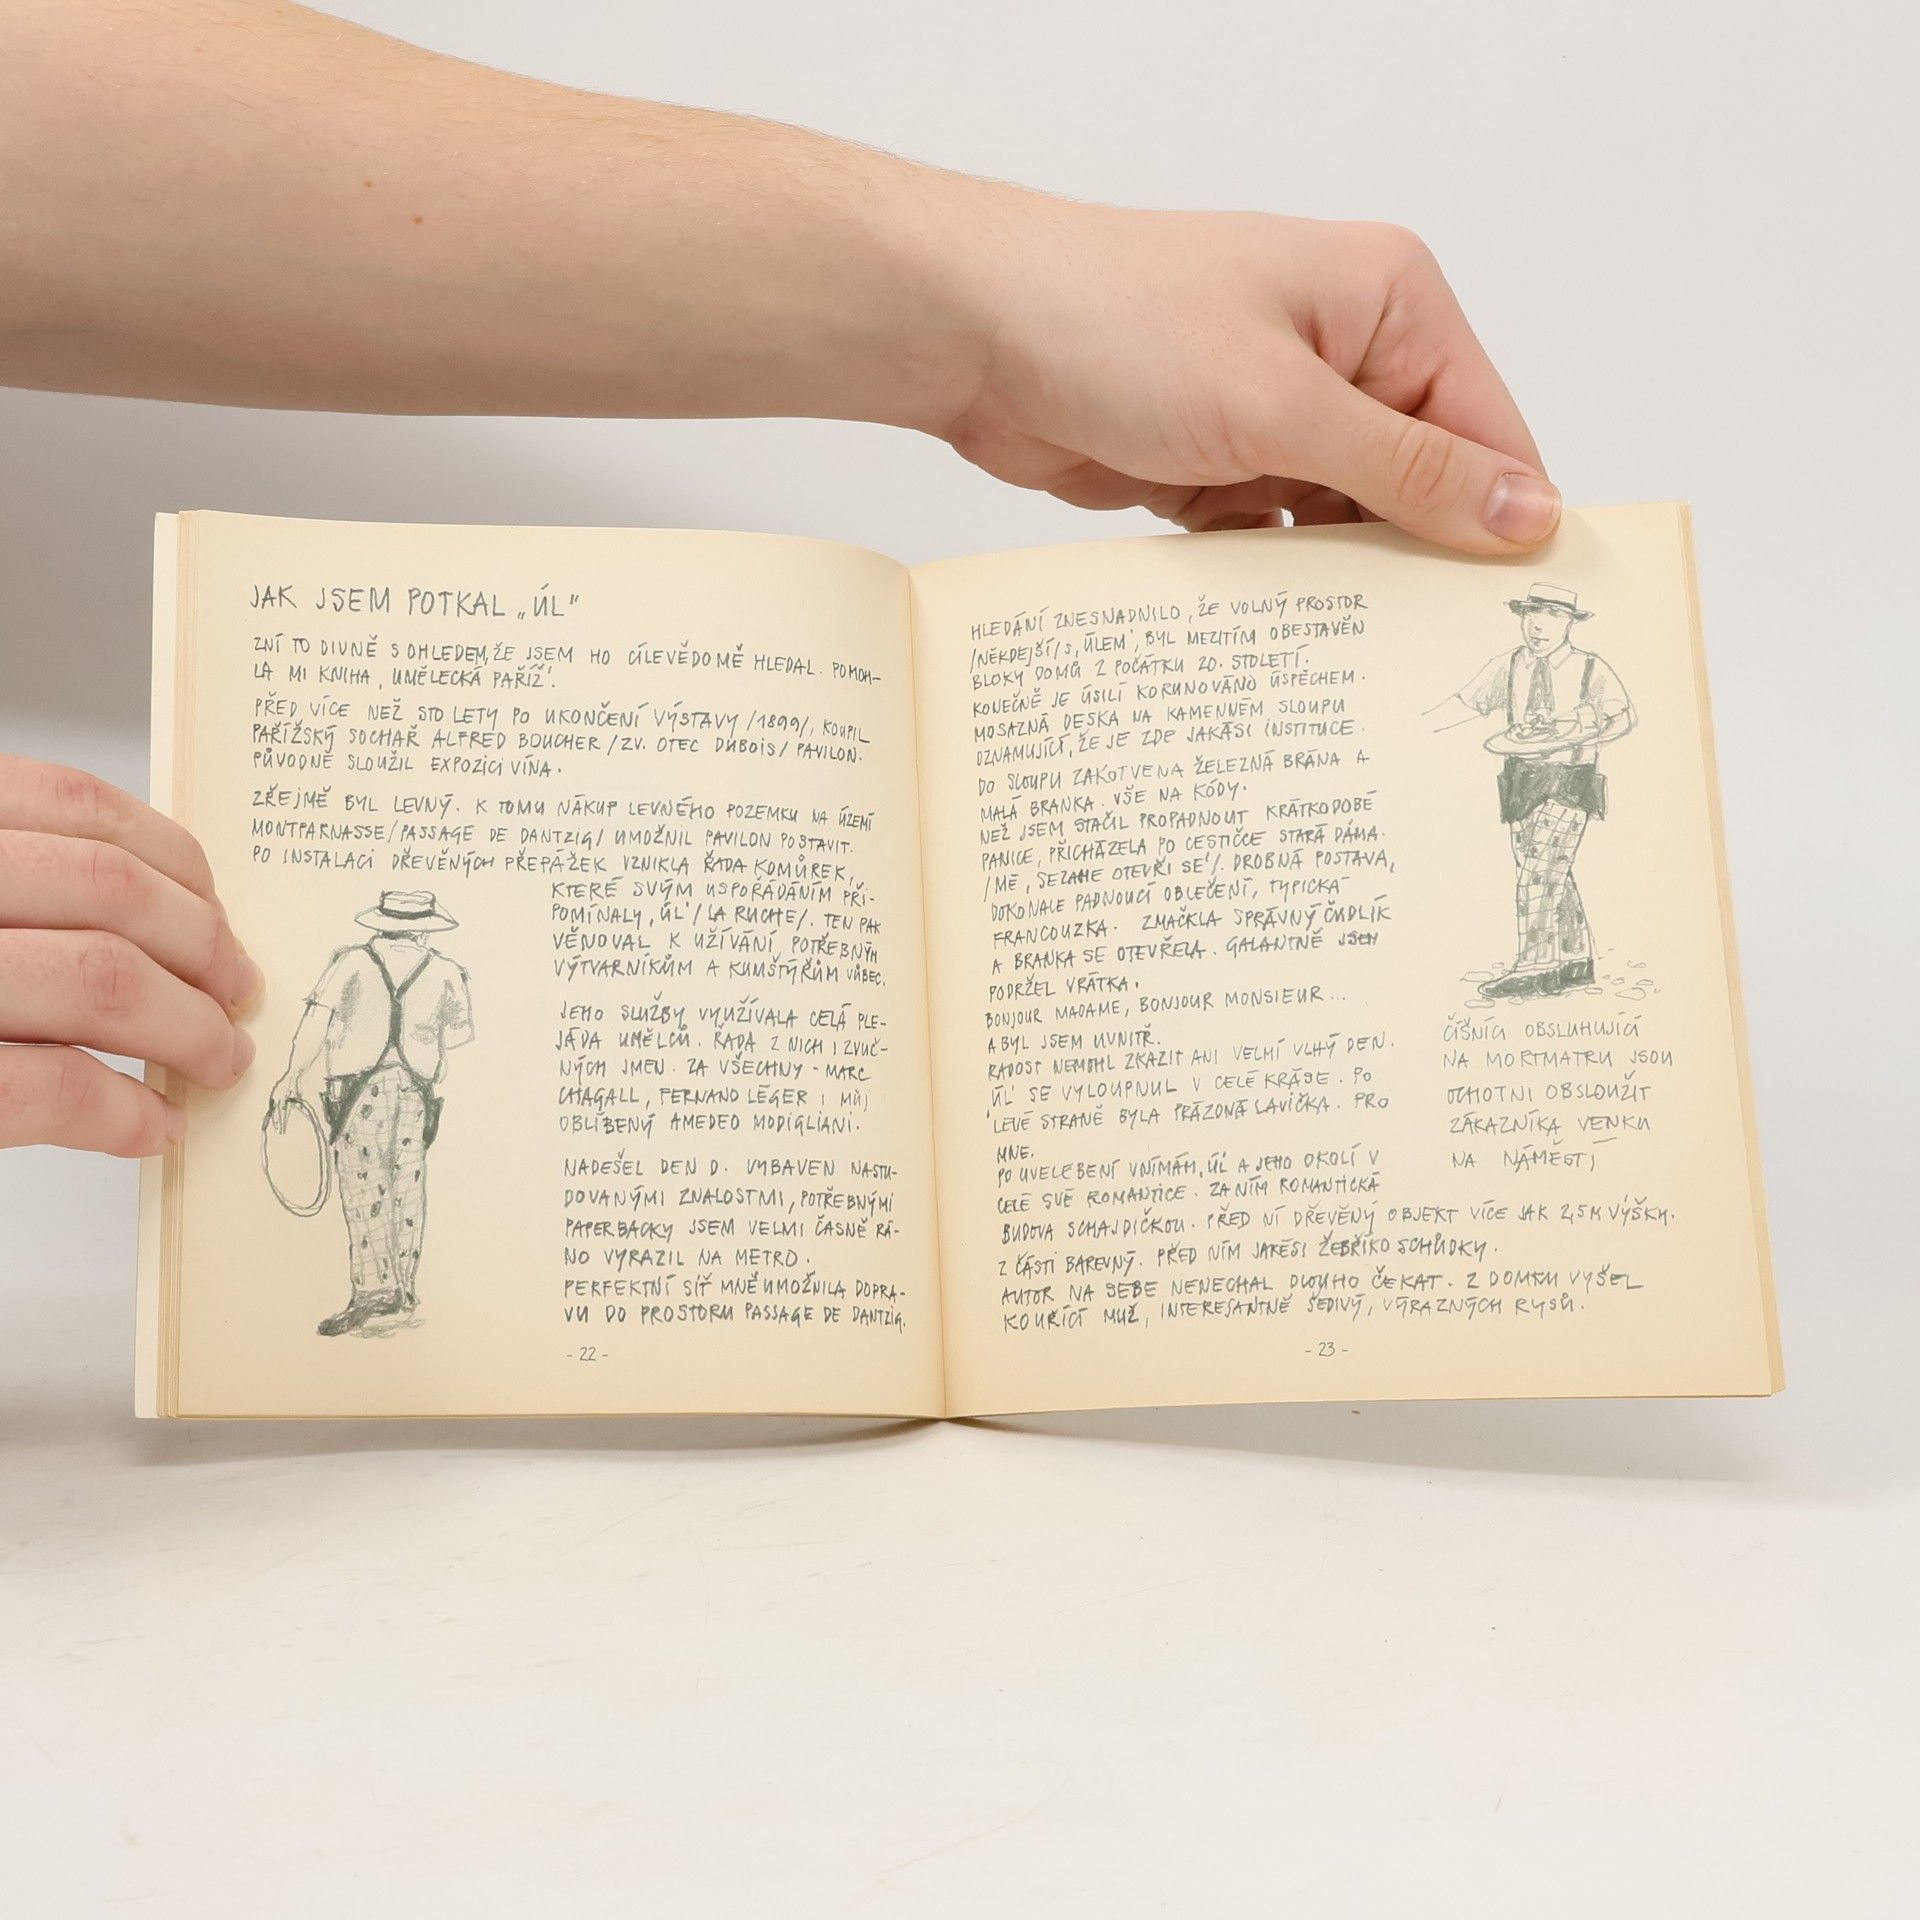 JAK JSEM POTKAL „ÚL"
ZNÍ TO DIVNĚ S OHLEDEM, ŽE JSEM HO CÍLEVĚDOMĚ HLEDAL. POMOH-
LA MI KNIHA ‚UMĚLECKÁ PAŘÍŽ'.
PŘED VÍCE NEŽ STO LETY PO UKONČENÍ VÝSTAVY /1899/, KOUPIL
PAŘÍŽSKÝ SOCHAŘ ALFRED BOUCHER /ZV. OTEC DUBOIS/ PAVILON.
PŮVODNĚ SLOUŽIL EXPOZICI VÍNA.
ZŘEJMĚ BYL LEVNÝ. K TOMU NÁKUP LEVNÉHO POZEMKU NA ÚZEMÍ
MONTPARNASSE /PASSAGE DE DANTZIG/ UMOŽNIL PAVILON POSTAVIT.
PO INSTALACI DŘEVĚNÝCH PŘEPÁŽEK VZNIKLA ŘADA KOMŮREK,
KTERÉ SVÝM USPOŘÁDÁNÍM PŘI-
POMÍNALY ‚ÚL' /LA RUCHE/. TEN PAK
VĚNOVAL K UŽÍVÁNÍ POTŘEBNÝM
VÝTVARNÍKŮM A KUMŠTÝŘŮM VŮBEC.
JEHO SLUŽBY VYUŽÍVALA CELÁ PLE-
JÁDA UMĚLCŮ. ŘADA Z NICH I ZVUČ-
NÝCH JMEN. ZA VŠECHNY - MARC
CHAGALL, FERNAND LÉGER I MŮJ
OBLÍBENÝ AMEDEO MODIGLIANI.
NADEŠEL DEN D. VYBAVEN NASTU-
DOVANÝMI ZNALOSTMI, POTŘEBNÝMI
PAPERBACKY JSEM VELMI ČASNĚ RÁ-
NO VYRAZIL NA METRO.
PERFEKTNÍ SÍŤ MNĚ UMOŽNILA DOPRA-
VU DO PROSTORU PASSAGE DE DANTZIG.
- 22 -
HLEDÁNÍ ZNESNADNILO, ŽE VOLNÝ PROSTOR
/NĚKDEJŠÍ/ S ‚ÚLEM', BYL MEZITÍM OBESTAVĚN
BLOKY DOMŮ Z POČÁTKU 20. STOLETÍ.
KONEČNĚ JE ÚSILÍ KORUNOVÁNO ÚSPĚCHEM.
MOSAZNÁ DESKA NA KAMENNÉM SLOUPU
OZNAMUJÍCÍ, ŽE JE ZDE JAKÁSI INSTITUCE.
DO SLOUPU ZAKOTVENA ŽELEZNÁ BRÁNA A
MALÁ BRANKA. VŠE NA KÓDY.
NEŽ JSEM STAČIL PROPADNOUT KRÁTKODOBÉ
PANICE, PŘICHÁZELA PO CESTIČCE STARÁ DÁMA.
/MÉ ‚SEZAME OTEVŘI SE'/. DROBNÁ POSTAVA,
DOKONALE PADNOUCÍ OBLEČENÍ, TYPICKÁ
FRANCOUZKA. ZMAČKLA SPRÁVNÝ ČUDLÍK
A BRANKA SE OTEVŘELA. GALANTNĚ JSEM
PODRŽEL VRÁTKA.
BONJOUR MADAME, BONJOUR MONSIEUR...
A BYL JSEM UVNITŘ.
RADOST NEMOHL ZKAZIT ANI VELMI VLHÝ DEN.
‚ÚL' SE VYLOUPNUL V CELÉ KRÁSE. PO
LEVÉ STRANĚ BYLA PRÁZDNÁ LAVIČKA. PRO
MNE.
PO UVELEBENÍ VNÍMÁM ‚ÚL' A JEHO OKOLÍ V
CELÉ SVÉ ROMANTICE. ZA NÍM ROMANTICKÁ
BUDOVA SCHAJDIČKOU. PŘED NÍ DŘEVĚNÝ OBJEKT VÍCE JAK 2,5 M VÝŠKY.
Z ČÁSTI BAREVNÝ. PŘED NÍM JAKÉSI ŽEBŘÍKO SCHŮDKY.
AUTOR NA SEBE NENECHAL DLOUHO ČEKAT. Z DOMKU VYŠEL
KOUŘÍCÍ MUŽ, INTERESANTNĚ ŠEDIVÝ, VÝRAZNÝCH RYSŮ.
ČÍŠNÍCI OBSLUHUJÍCÍ
NA MORTMATRU JSOU
OCHOTNI OBSLOUŽIT
ZÁKAZNÍKA VENKU
NA NÁMĚSTÍ
- 23 -